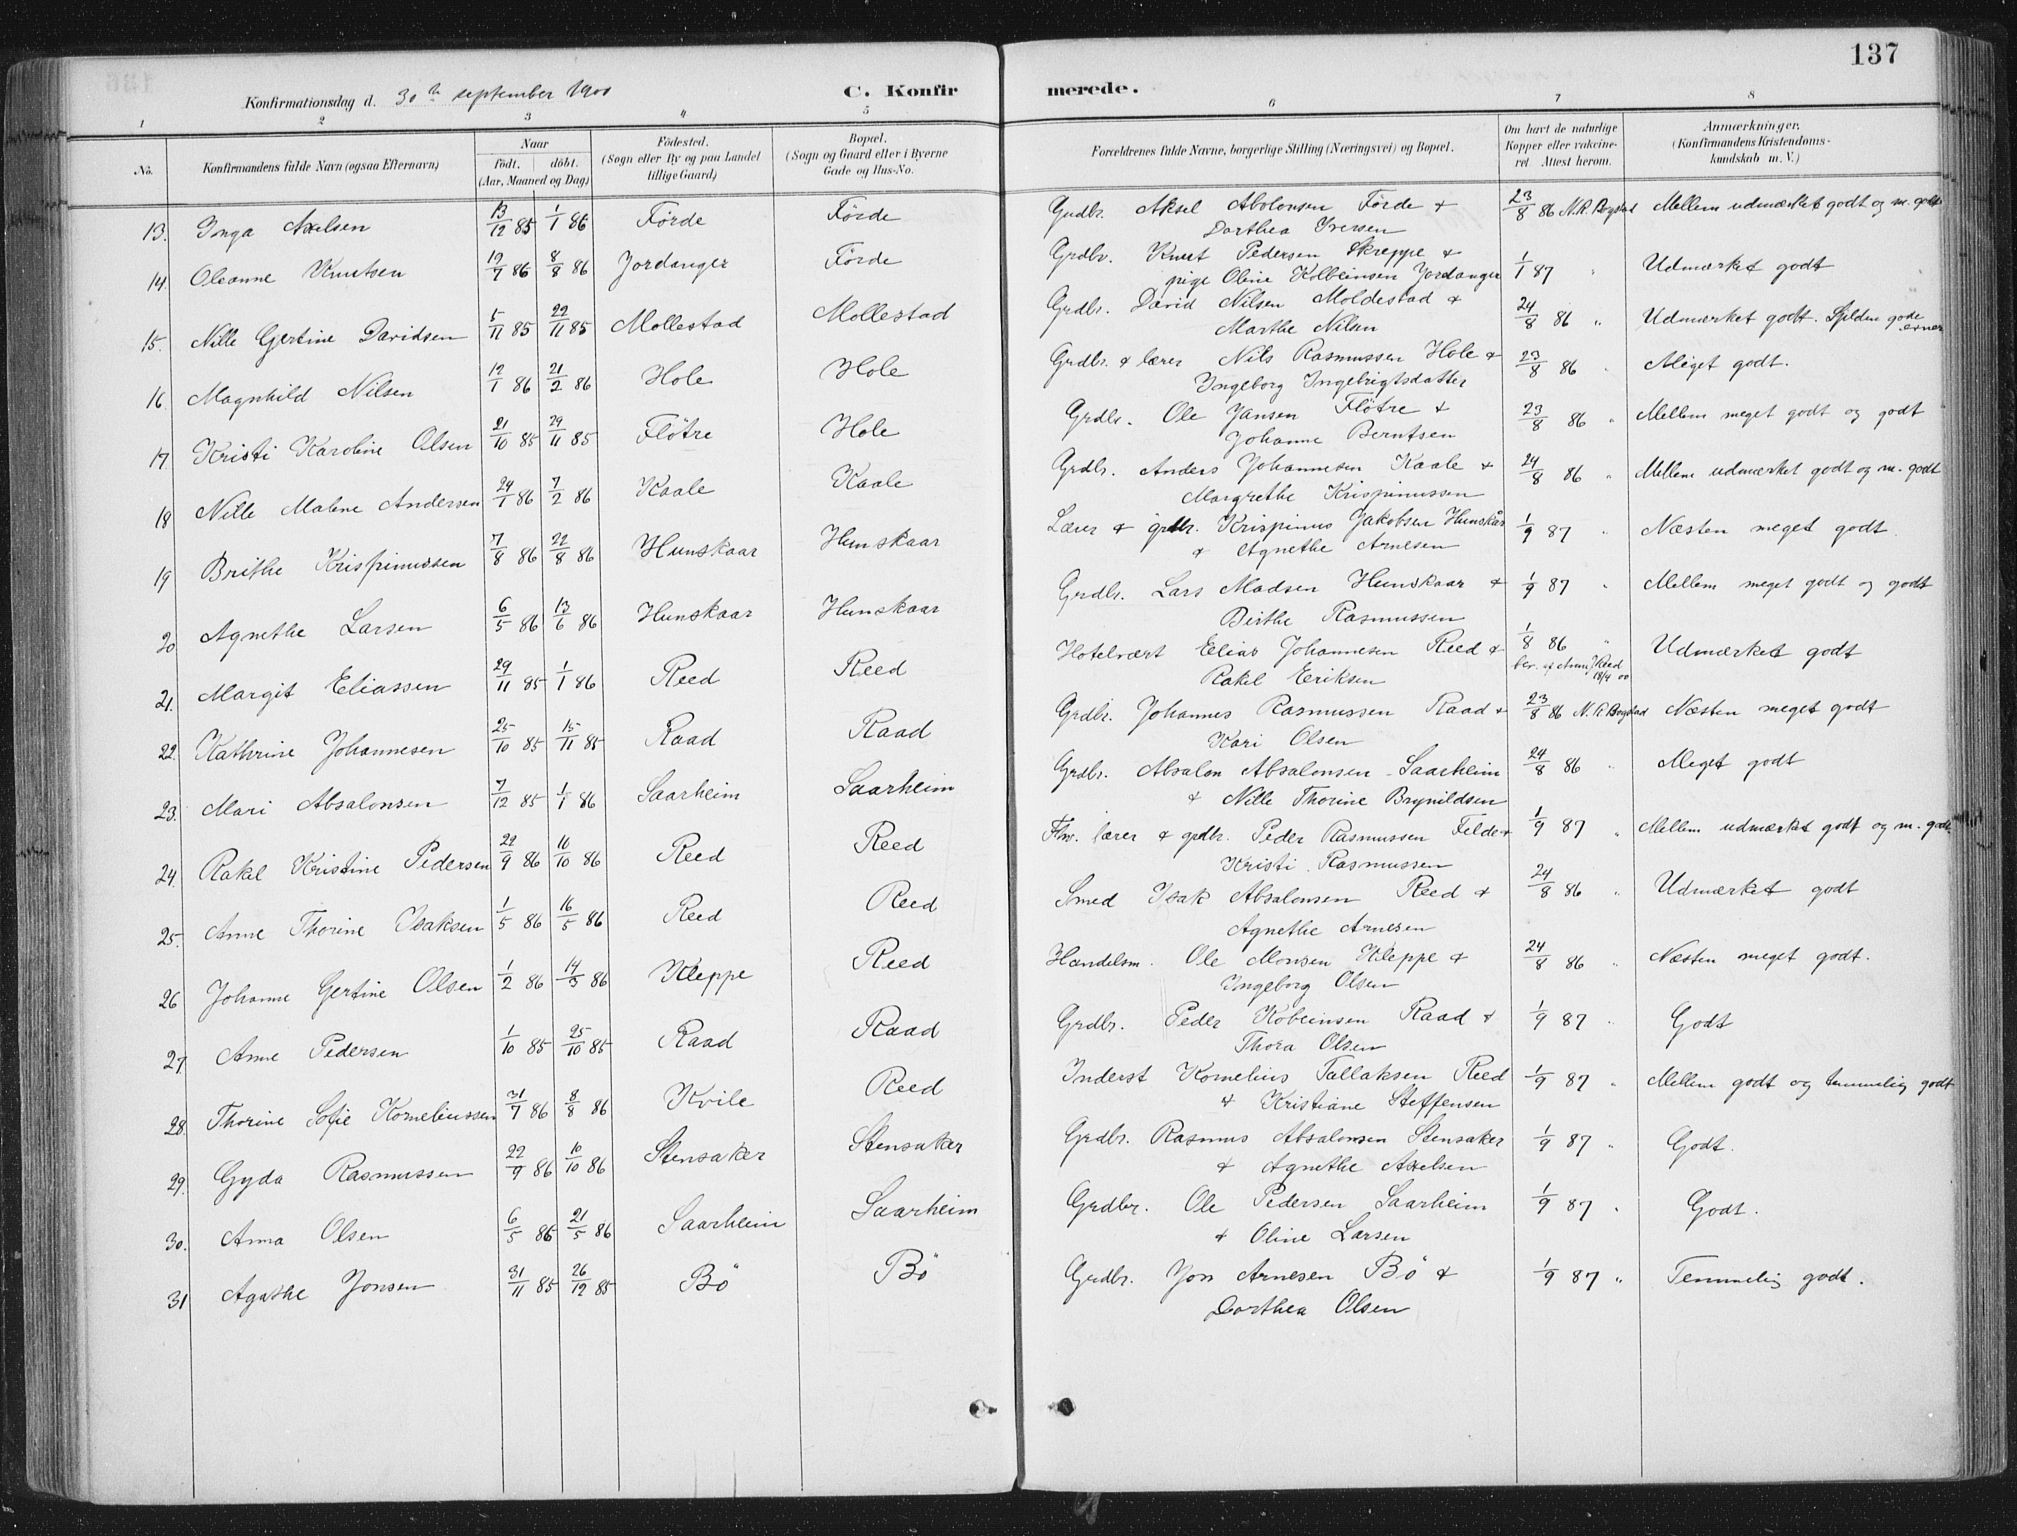 137
Konfirmationsdag d. 30te september 1900 C. Konfirmerede.
1 2 3 4 5 6 7 8
No. Konfirmandens fulde Navn (ogsaa Efternavn) Naar födt. döbt. (Aar, Maaned og Dag) Födested. (Sogn eller By og paa Landet tillige Gaard) Bopæl. (Sogn og Gaard eller i Byerne Gade og Hus-No. Forældrenes fulde Navne, borgerlige Stilling (Næringsvei) og Bopæl. Om havt de naturlige Kopper eller vaccineret. Attest herom. Anmærkninger. (Konfirmandens Kristendomskundskab m. V.)
13. Inga Axelsen 13/12 85 1/1 86 Förde Förde Grdbr. Aksel Abolonsen Förde & 23/8 86 N.R. Bogstad Mellem udmærket godt og m. godt
Dorthea Iversen
14. Oleanne Knutsen 19/7 86 8/8 86 Jordanger Förde Grdbr. Knut Pedersen Skreppe & 1/1 87 " Udmærket godt
pige Oline Kolbeinsen Jordanger
15. Nille Gertine Davidsen 5/11 85 22/11 85 Mollestad Mollestad Grdbr. David Nilsen Moldestad & 24/8 86 " Udmærket godt. Sjelden gode evner
Marthe Nilsen
16. Magnhild Nilsen 12/1 86 21/2 86 Hole Hole Grdbr. & lærer Nils Rasmussen Hole & 23/8 86 " Meget godt.
Ingeborg Ingebrigtsdatter
17. Kristi Karoline Olsen 21/10 85 29/11 85 Flötre Hole Grdbr. Ole Jansen Flötre & 23/8 86 " Mellem meget godt og godt
Johanne Berntsen
18. Nille Malene Andersen 24/1 86 7/2 86 Kaale Kaale Grdbr. Anders Johannesen Kaale & 24/8 86 " Mellem udmærket godt og m. godt
Margrethe Krispinussen
19 Brithe Krispinussen 7/8 86 22/8 86 Hunskaar Hunskaar Lærer & grdbr. Krispinus Jakobsen Hunskår 1/9 87 " Næsten meget godt.
& Agnethe Arnesen
20 Agnethe Larsen 6/5 86 13/6 86 Hunskaar Hunskaar Grdbr. Lars Madsen Hunskaar & 1/9 87 " Mellem meget godt og godt
Birthe Rasmussen
21. Margit Eliassen 29/11 85 1/1 86 Reed Reed Hotelvært Elias Johannesen Reed & 1/8 86 " Udmærket godt
Rakel Eriksen
22. Kathrine Johannesen 25/10 85 15/11 85 Raad Raad Grdbr. Johannes Rasmussen Raad & 23/8 86 N.R. Bogstad Næsten meget godt
Kari Olsen
23. Mari Absalonsen 7/12 85 1/1 86 Saarheim Saarheim Grdbr. Absalon Absalonsen Saarheim 24/8 86 " Meget godt
& Nille Thorine Brynildsen
24. Rakel Kristine Pedersen 22/9 86 10/10 86 Reed Reed Fhv. lærer & grdbr. Peder Rasmussen Felde & 1/9 87 " Mellem udmærket godt og m. godt.
Kristi Rasmussen
25. Anne Thorine Isaksen 1/5 86 16/5 86 Reed Reed Smed Isak Absalonsen Reed & 24/8 86 " Udmærket godt
Agnethe Arnesen
26 Johanne Gertine Olsen 1/2 86 14/3 86 Kleppe Reed Handelsm. Ole Monsen Kleppe & 24/8 86 " Næsten meget godt.
Ingeborg Olsen
27. Anne Pedersen 1/10 85 25/10 85 Raad Raad Grdbr. Peder Kobeinsen Raad & 1/9 87 " Godt
Thora Olsen
28. Thorine Sofie Korneliussen 31/7 86 8/8 86 Kvile Reed Inderst Kornelius Tallaksen Reed 1/9 87 " Mellem godt og temmelig godt
& Kristiane Steffensen
29. Gyda Rasmussen 22/9 86 10/10 86 Stensaker Stensaker Grdbr. Rasmus Absalonsen Stensaker 1/9 87 " Godt.
& Agnethe Axelsen
30. Anna Olsen 6/5 86 21/5 86 Saarheim Saarheim Grdbr. Ole Pedersen Saarheim 1/9 87 " Godt.
& Oline Larsen
31 Agathe Jonsen 31/11 85 26/12 85 Bö Bö Grdbr. Jon Arnesen Bö & 1/9 87 " Temmelig godt.
Dorthea Olsen